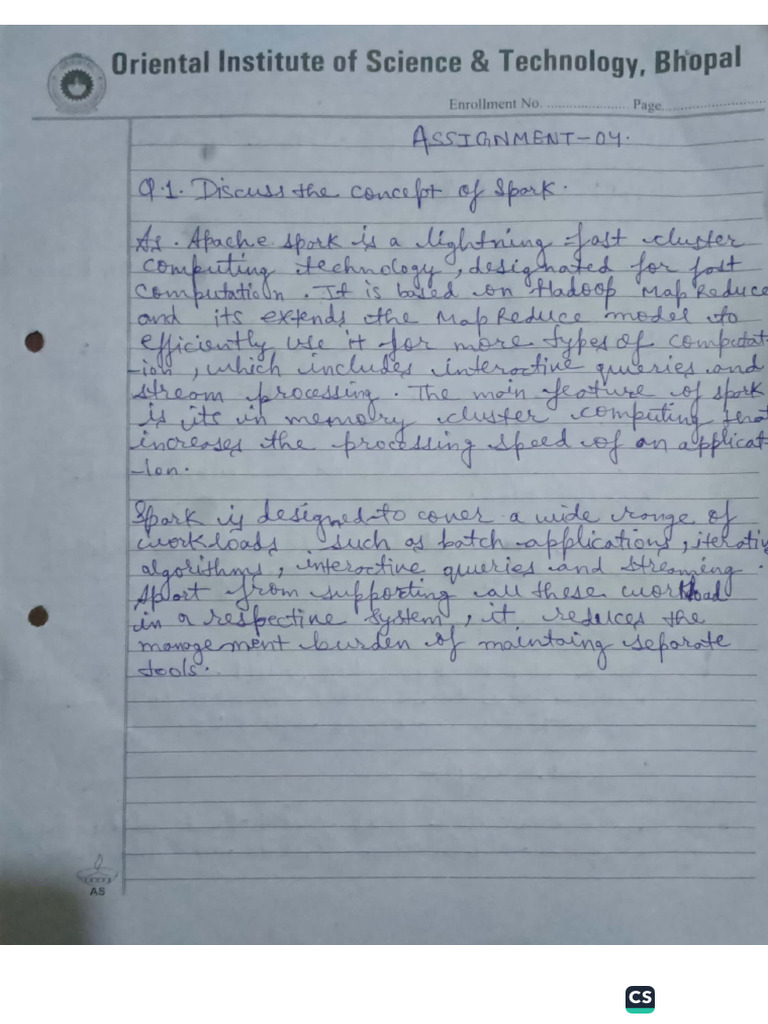 Oriental Institute of Science & Technology, Bhopal
Enrollment No. ..................... Page..........................
ASSIGNMENT-04.
Q.1. Discuss the concept of Spark.
As. Apache spark is a lightning-fast cluster
computing technology, designated for fast
computation. It is based on Hadoop MapReduce
and its extends the MapReduce model to
efficiently use it for more types of computat-
-ion, which includes interactive queries and
stream processing. The main feature of spark
is its in memory cluster computing that
increases the processing speed of an applicat-
-ion.
Spark is designed to cover a wide range of
workloads such as batch applications, iterativ
algorithms, interactive queries and streaming.
Apart from supporting all these workload
in a respective system, it reduces the
management burden of maintaing separate
tools.
AS
CS